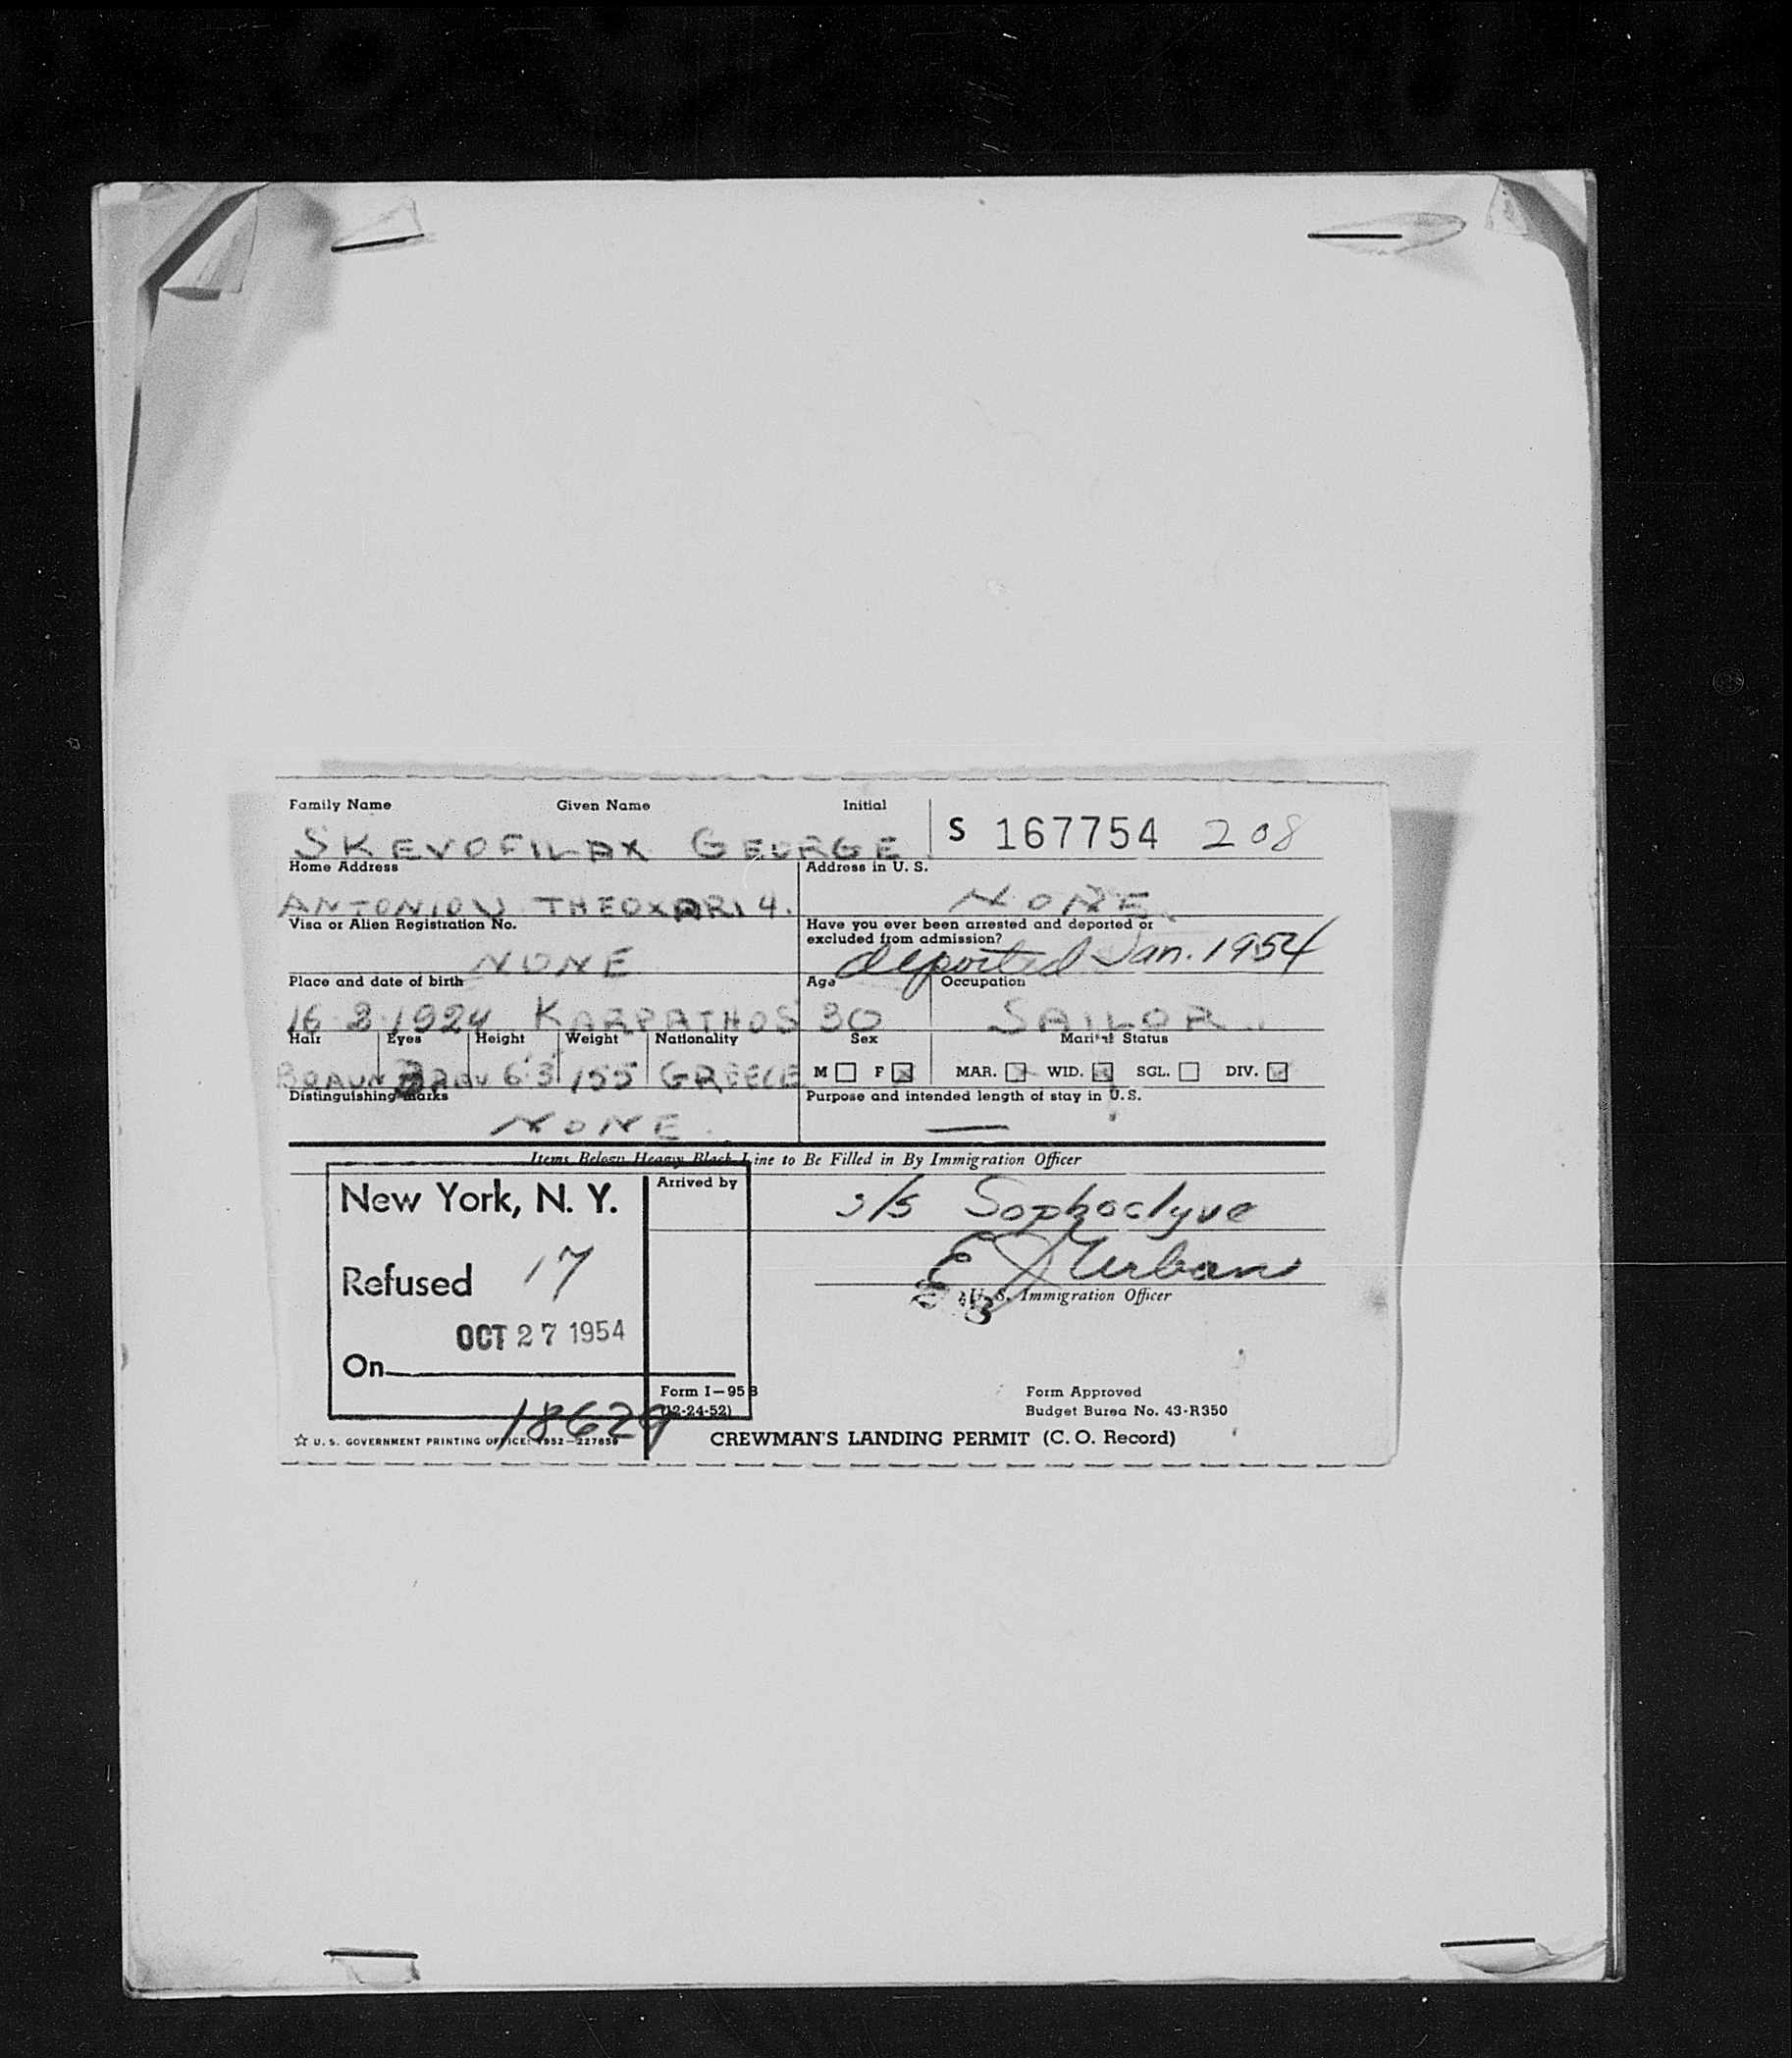 Family Name Given Name Initial
SKEVOFILAX GEORGE. S 167754 208
Home Address Address in U. S.
ANTONIOU THEOXARI 4. NONE.
Visa or Alien Registration No. Have you ever been arrested and deported or
excluded from admission?
NONE deported Jan. 1954
Place and date of birth Age Occupation
16 2 1924 KARPATHOS 30 SAILOR..
Hair Eyes Height Weight Nationality Sex Marital Status
BRAUN 6·3 155 GREECE M F MAR. WID. SGL. DIV.
Distinguishing marks Purpose and intended length of stay in U.S.
NONE. —
Items Below Heavy Black Line to Be Filled in By Immigration Officer
New York, N. Y. Arrived by s/s Sophoclyve
Refused 17 E Urban
U. S. Immigration Officer
OCT 27 1954
On
Form I-95 B Form Approved
18629 (12-24-52) Budget Bureau No. 43-R350
☆ U. S. GOVERNMENT PRINTING OFFICE: 1952—227859 CREWMAN'S LANDING PERMIT (C. O. Record)